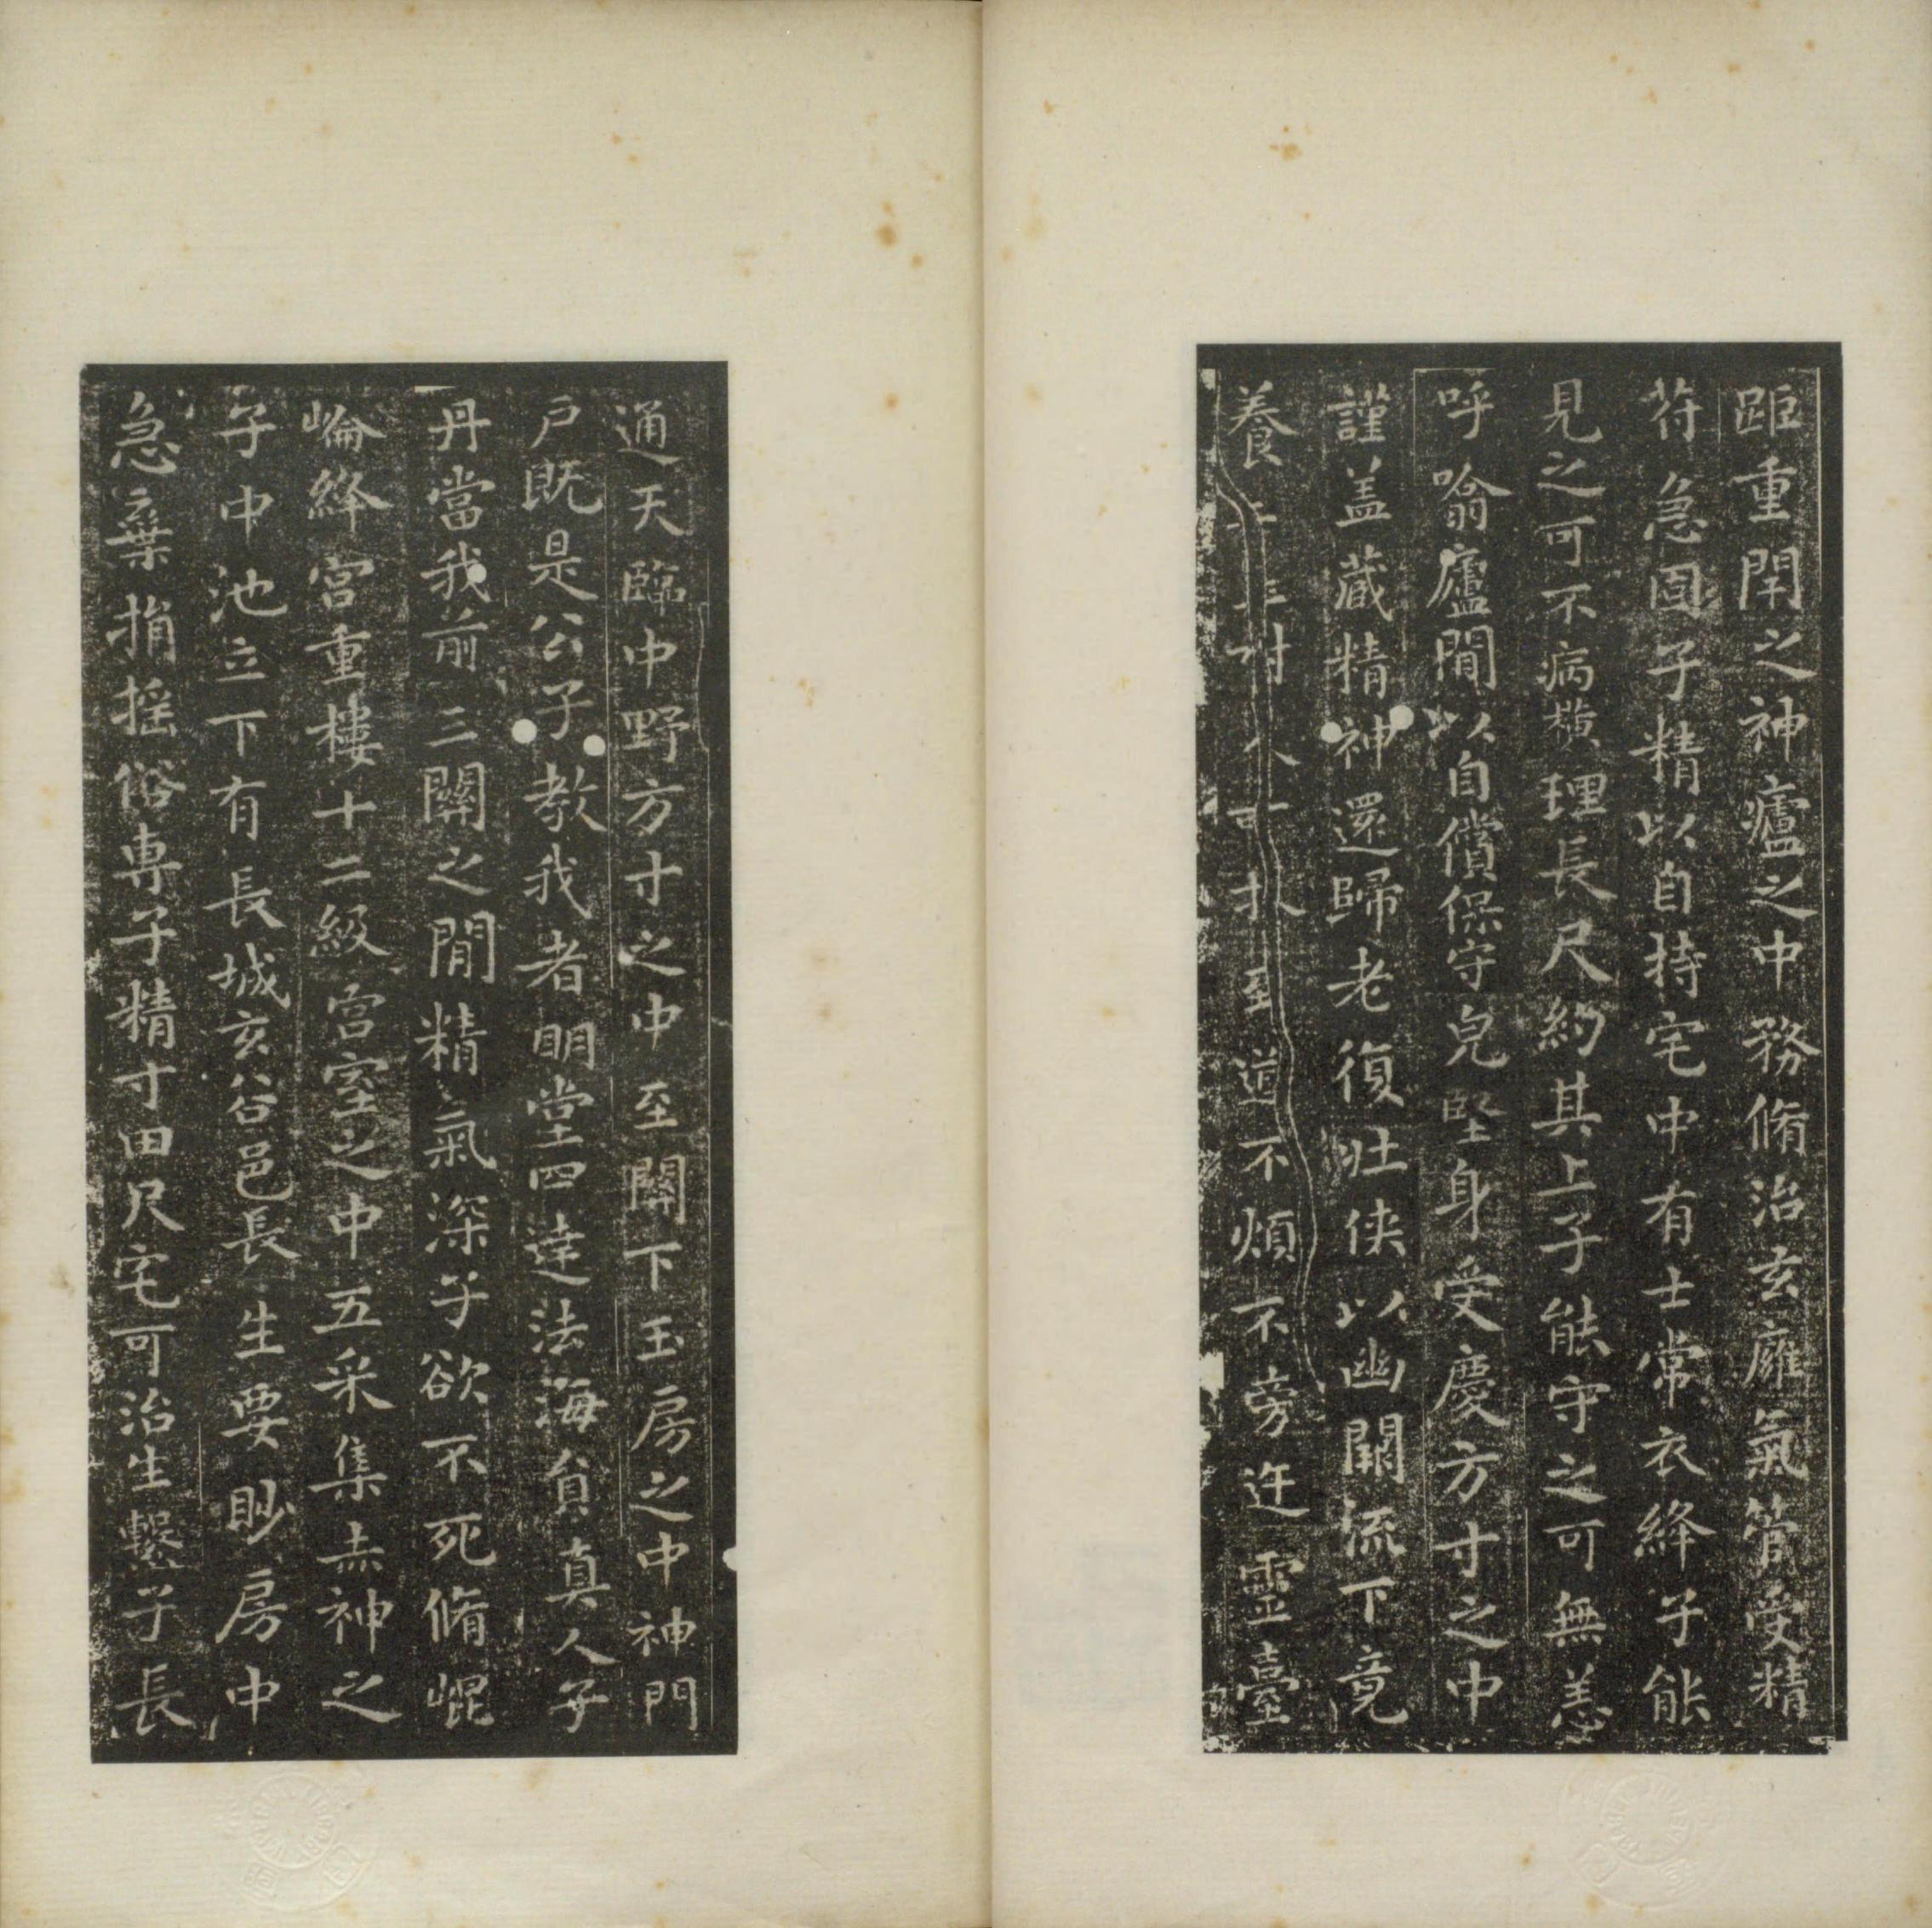 距重閈之神廬之中務脩治玄廱氣管受精
符急固子精以自持宅中有士常衣絳子能
見之可不病橫理長尺約其上子能守之可無恙
呼噏廬閒以自償保守皃堅身受慶方寸之中
謹盖藏精神還歸老復壯俠以幽闕流下竟
養 至道不煩不旁迕靈臺
通天臨中野方寸之中至關下玉房之中神門
戶既是公子教我者明堂四達法海負真人子
丹當我前三關之閒精氣深子欲不死脩崐
崘絳宮重樓十二級宮室之中五采集赤神之
子中池立下有長城玄谷邑長生要眇房中
急棄捐摇俗専子精寸田尺宅可治生繫子長